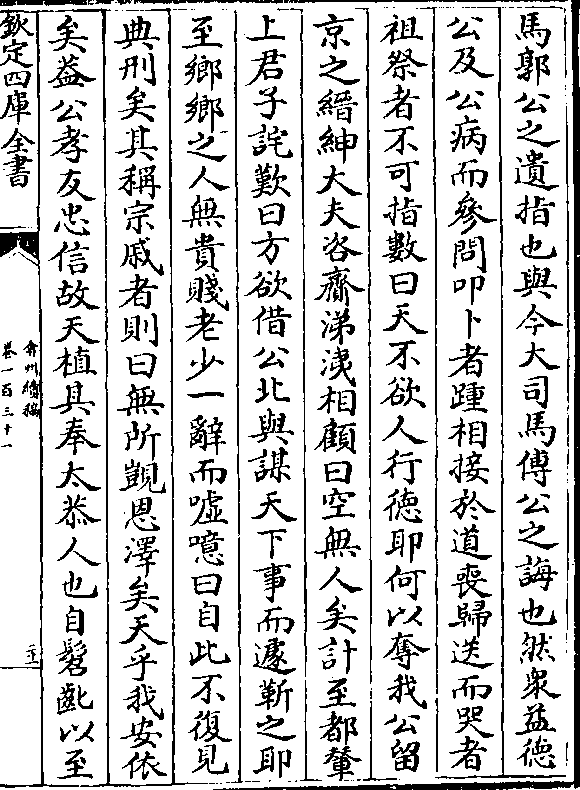 馬郭公之遺指也與今大司馬傅公之誨也然衆益徳
公及公病而參問叩卜者踵相接於道喪歸送而哭者
祖祭者不可指數曰天不欲人行徳耶何以奪我公留
京之縉紳大夫咨齎涕洟相顧曰空無人矣計至都輦
上君子詫歎曰方欲借公北與謀天下事而遽靳之耶
至鄉鄉之人無貴賤老少一辭而噓噫曰自此不復見
典刑矣其稱宗戚者則曰無所覬恩澤矣天乎我安依
矣葢公孝友忠信故天植具奉太恭人也自髫齔以至
欽定四庫全書
弇州續稿
卷一百三十一
二十